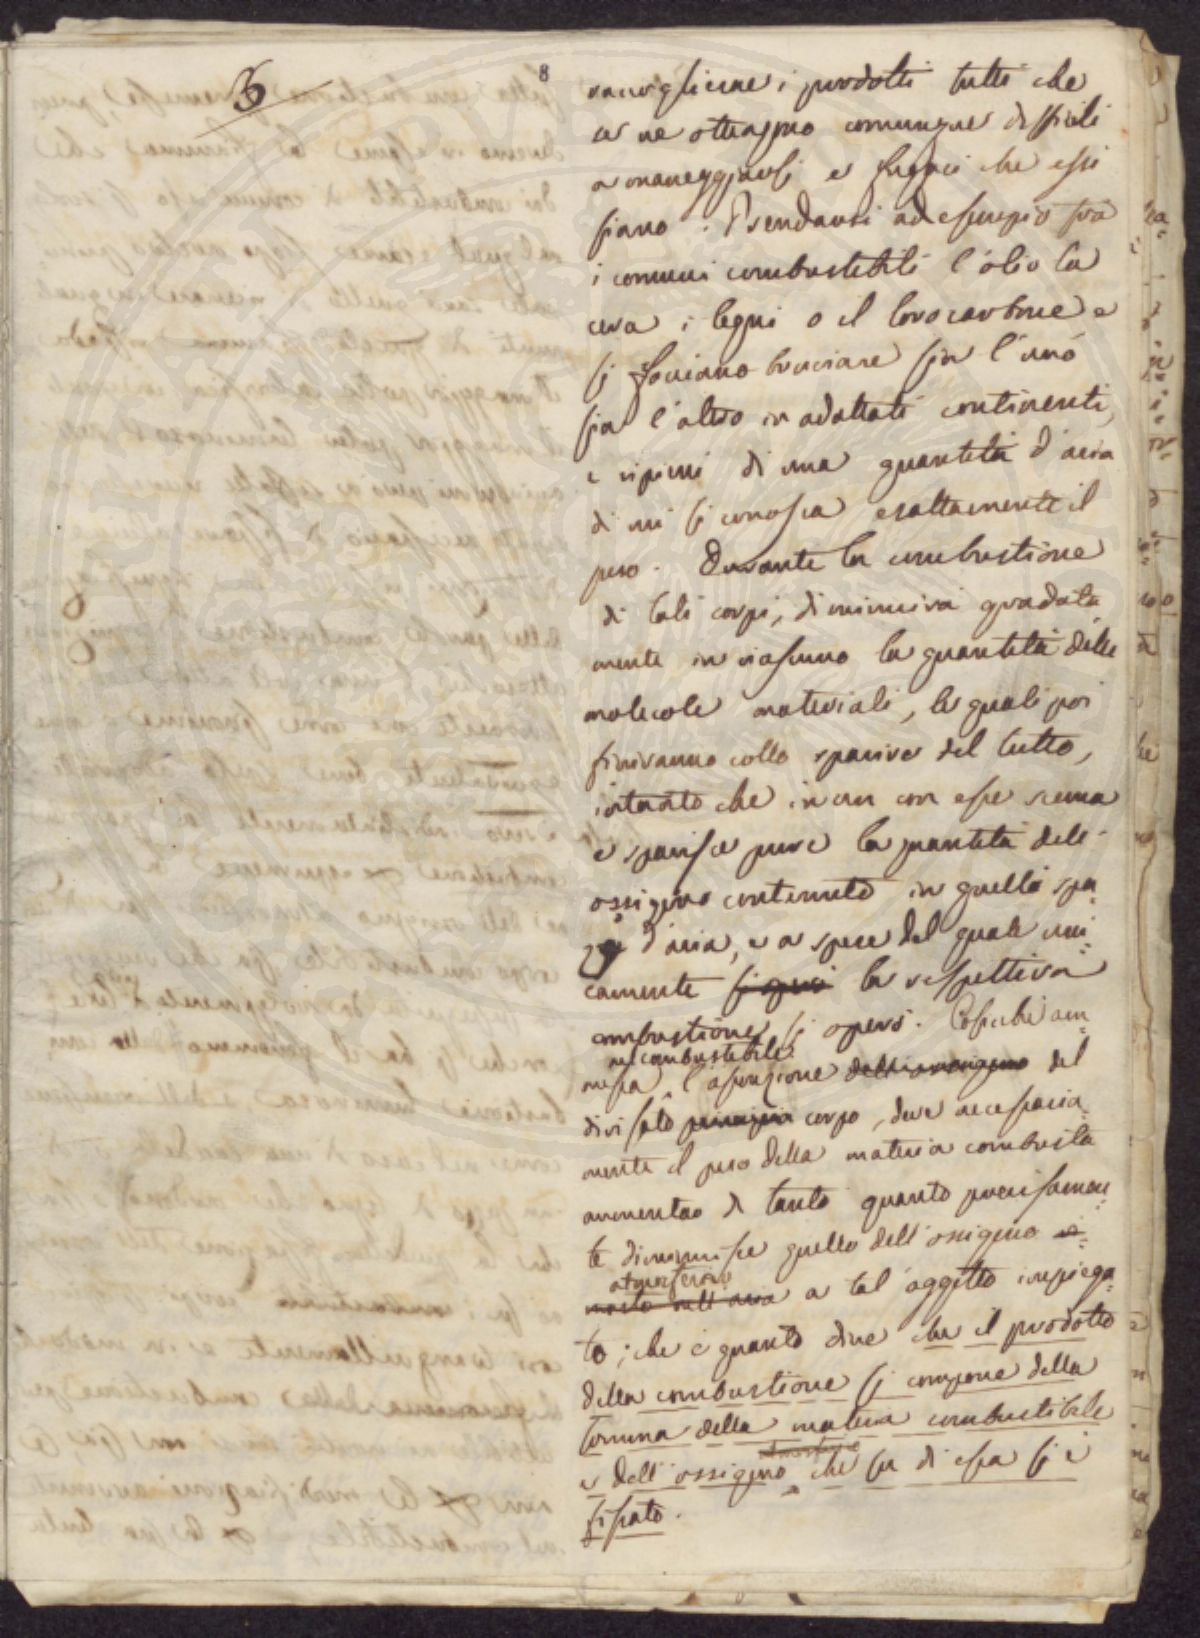 3
8
raccogliere i prodotti tutti che
se ne ottengono comunque difficili
a maneggiarsi e fugaci che essi
siano. Prendansi ad esempio fra
i comuni combustibili l'olio la
cera i legni o il loro carbone e
si facciano bruciare sia l'uno
sia l'altro in adattati continenti,
e ripieni di una quantità d'aria
di cui si conosca esattamente il
peso. Durante la combustione
di tali corpi, diminuirà gradata-
mente in ciascuno la quantità delle
molecole materiali, le quali poi
finiranno collo sparire del tutto,
intanto che in un con esse scema
e sparisce pure la quantità dell'
ossigeno contenuto in quello spa-
zio d'aria, e a spese del quale uni-
camente la respettiva
combustione si operò. Cosicché am-
nel combustibile
messa l'assunzione del
divisato corpo, deve necessaria-
mente il peso della materia combusta
aumentar di tanto quanto precisamen-
te diminuisce quello dell'ossigeno
atmosferico
a tal oggetto impiega-
to; che è quanto dire che il prodotto
della combustione si compone della
somma della materia combustibile
e dell'ossigeno che su di essa si è
fissato.